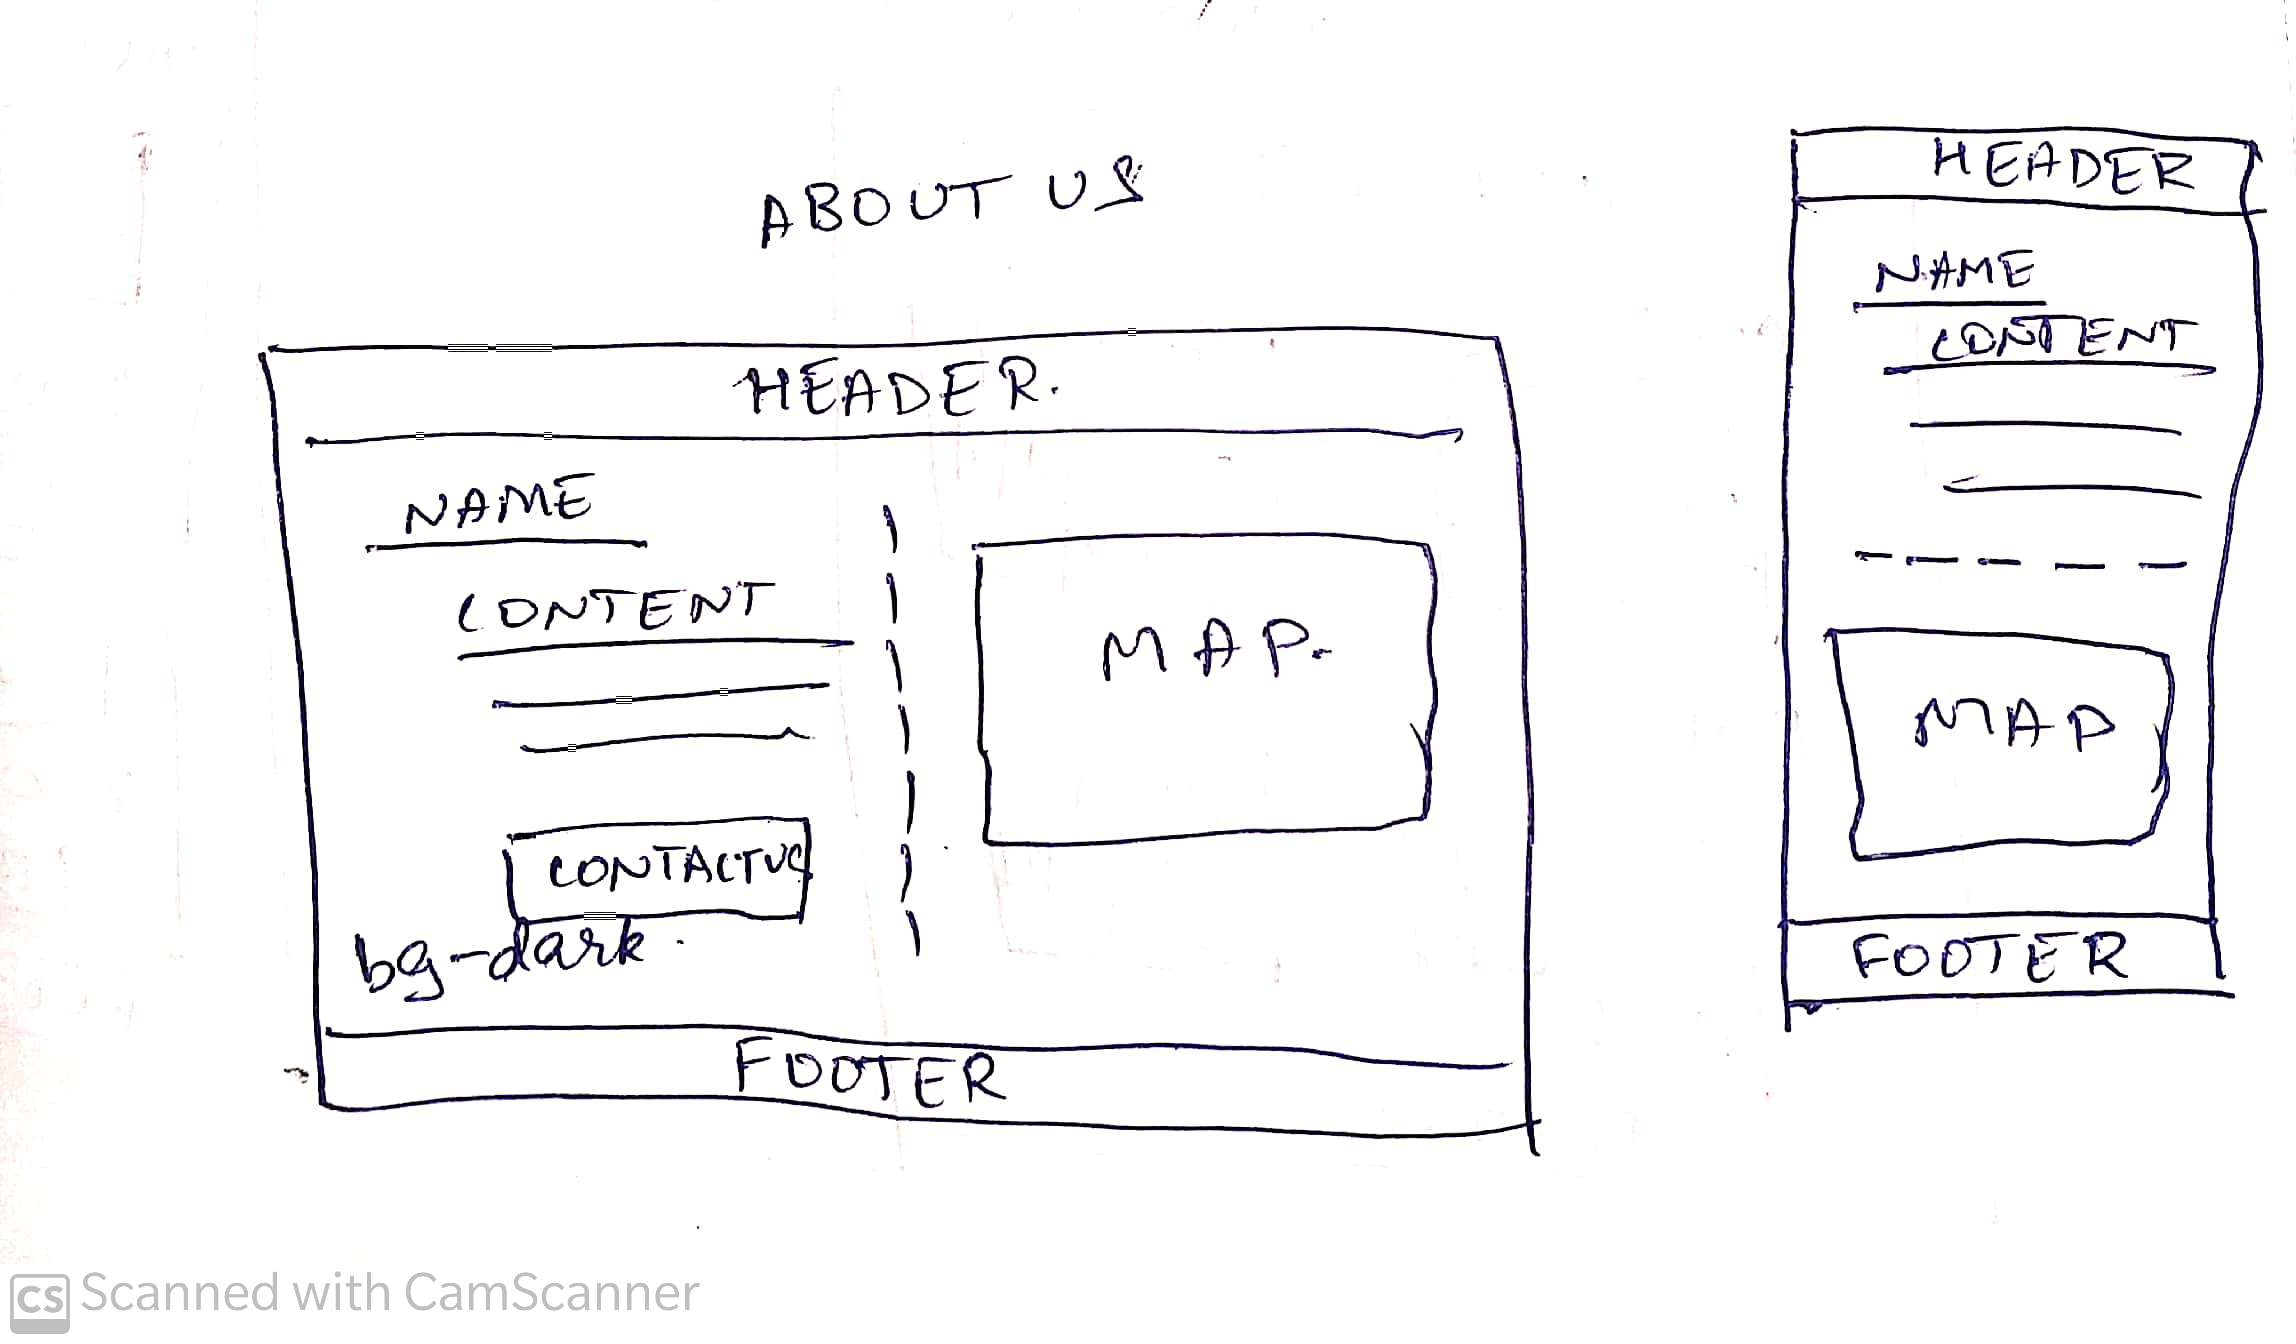 ABOUT US
HEADER.
NAME
CONTENT
CONTACTUS
bg-dark.
MAP.
FOOTER
HEADER
NAME
CONTENT
MAP
FOOTER
CS Scanned with CamScanner